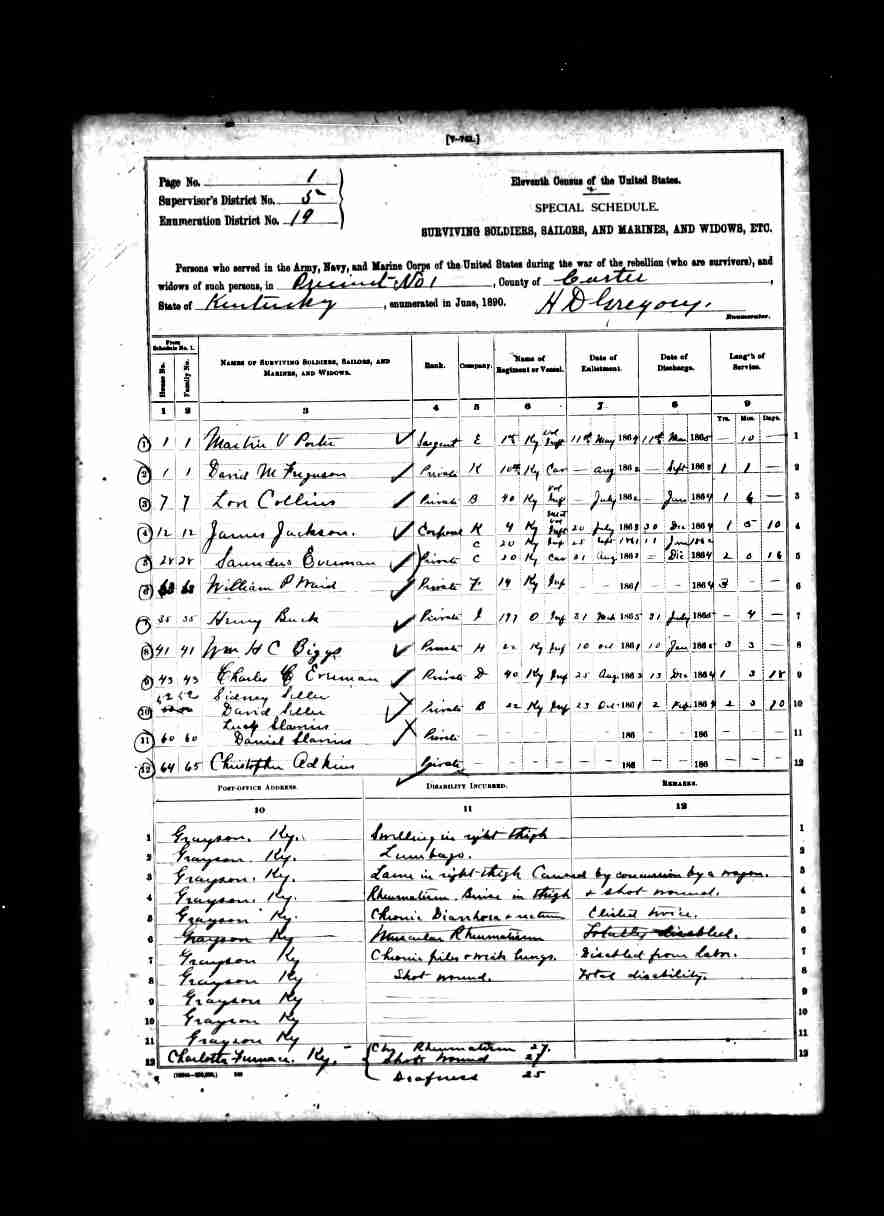 [7-762.]
Page No. 1
Supervisor's District No. 5
Enumeration District No. 19
Eleventh Census of the United States.
SPECIAL SCHEDULE.
SURVIVING SOLDIERS, SAILORS, AND MARINES, AND WIDOWS, ETC.
Persons who served in the Army, Navy, and Marine Corps of the United States during the war of the rebellion (who are survivors), and
widows of such persons, in Precinct No 1, County of Carter,
State of Kentucky, enumerated in June, 1890. H D Gregory.
Enumerator.
From Schedule No. 1.
House No. Family No. NAMES OF SURVIVING SOLDIERS, SAILORS, AND MARINES, AND WIDOWS. Rank. Company. Name of Regiment or Vessel. Date of Enlistment. Date of Discharge. Length of Service.
1 2 3 4 5 6 7 8 9
Yrs. Mos. Days.
1 1 1 Martin V Porter Sargent E 1st Ky Vol Inft 11th May 1864 11th Mar 1865 – 10 – 1
2 1 1 David M Ferguson Private K 10th Ky Cav – Aug 1862 – Sept 1863 1 1 – 2
3 7 7 Lon Collins Private B 40 Ky Vol Inf – July 186 – June 1864 1 6 – 3
4 12 12 James Jackson. Corporal K 4 Ky Inft 20 July 1863 30 Dec 1864 1 5 10 4
C 20 Ky Inf 25 Sept 1861 11 Jan 186
5 28 28 Saunders Private C 20 Ky Cav 21 Aug 1862 – Dec 1864 2 16 5
6 63 63 William P Private F 14 Ky Inf – – 1861 – – 1864 3 – – 6
7 35 35 Henry Buck Private I 197 O Inf 31 Mch 1865 31 July 1865 – 4 – 7
8 41 41 Wm H C Biggs Private H 22 Ky Inf 10 Oct 1861 10 Jan 186 3 3 – 8
9 43 43 Charles C Private D 40 Ky Inf 25 Aug 1863 13 Dec 1864 1 3 18 9
52 52 Sidney
10 David Private B 22 Ky Inf 23 Oct 1861 2 186 2 3 10 10
Lucy
11 60 60 Daniel Private – – – – – 186 – – 186 – – – 11
12 64 65 Christopher Adkins Private – – – – – 186 – – 186 – – – 12
POST-OFFICE ADDRESS. DISABILITY INCURRED. REMARKS.
10 11 12
1 Grayson, Ky. Swelling in right thigh 1
2 Grayson. Ky. Lumbago. 2
3 Grayson. Ky. Lame in right thigh Caused by concussion by a wagon. 3
4 Grayson. Ky. Rheumatism. in thigh & shot wound. 4
5 Grayson Ky. Chronic Diarrhoea Elisted twice. 5
6 Grayson Ky Muscular Rheumatism Totally disabled. 6
7 Grayson Ky Chronic piles & weak lungs. Disabled from labor. 7
8 Grayson Ky Shot wound. Total disability. 8
9 Grayson Ky 9
10 Grayson Ky 10
11 Grayson Ky 11
12 Charlotte Furnace. Ky. Rheumatism 27. 12
Shot wound 27
Deafness 25